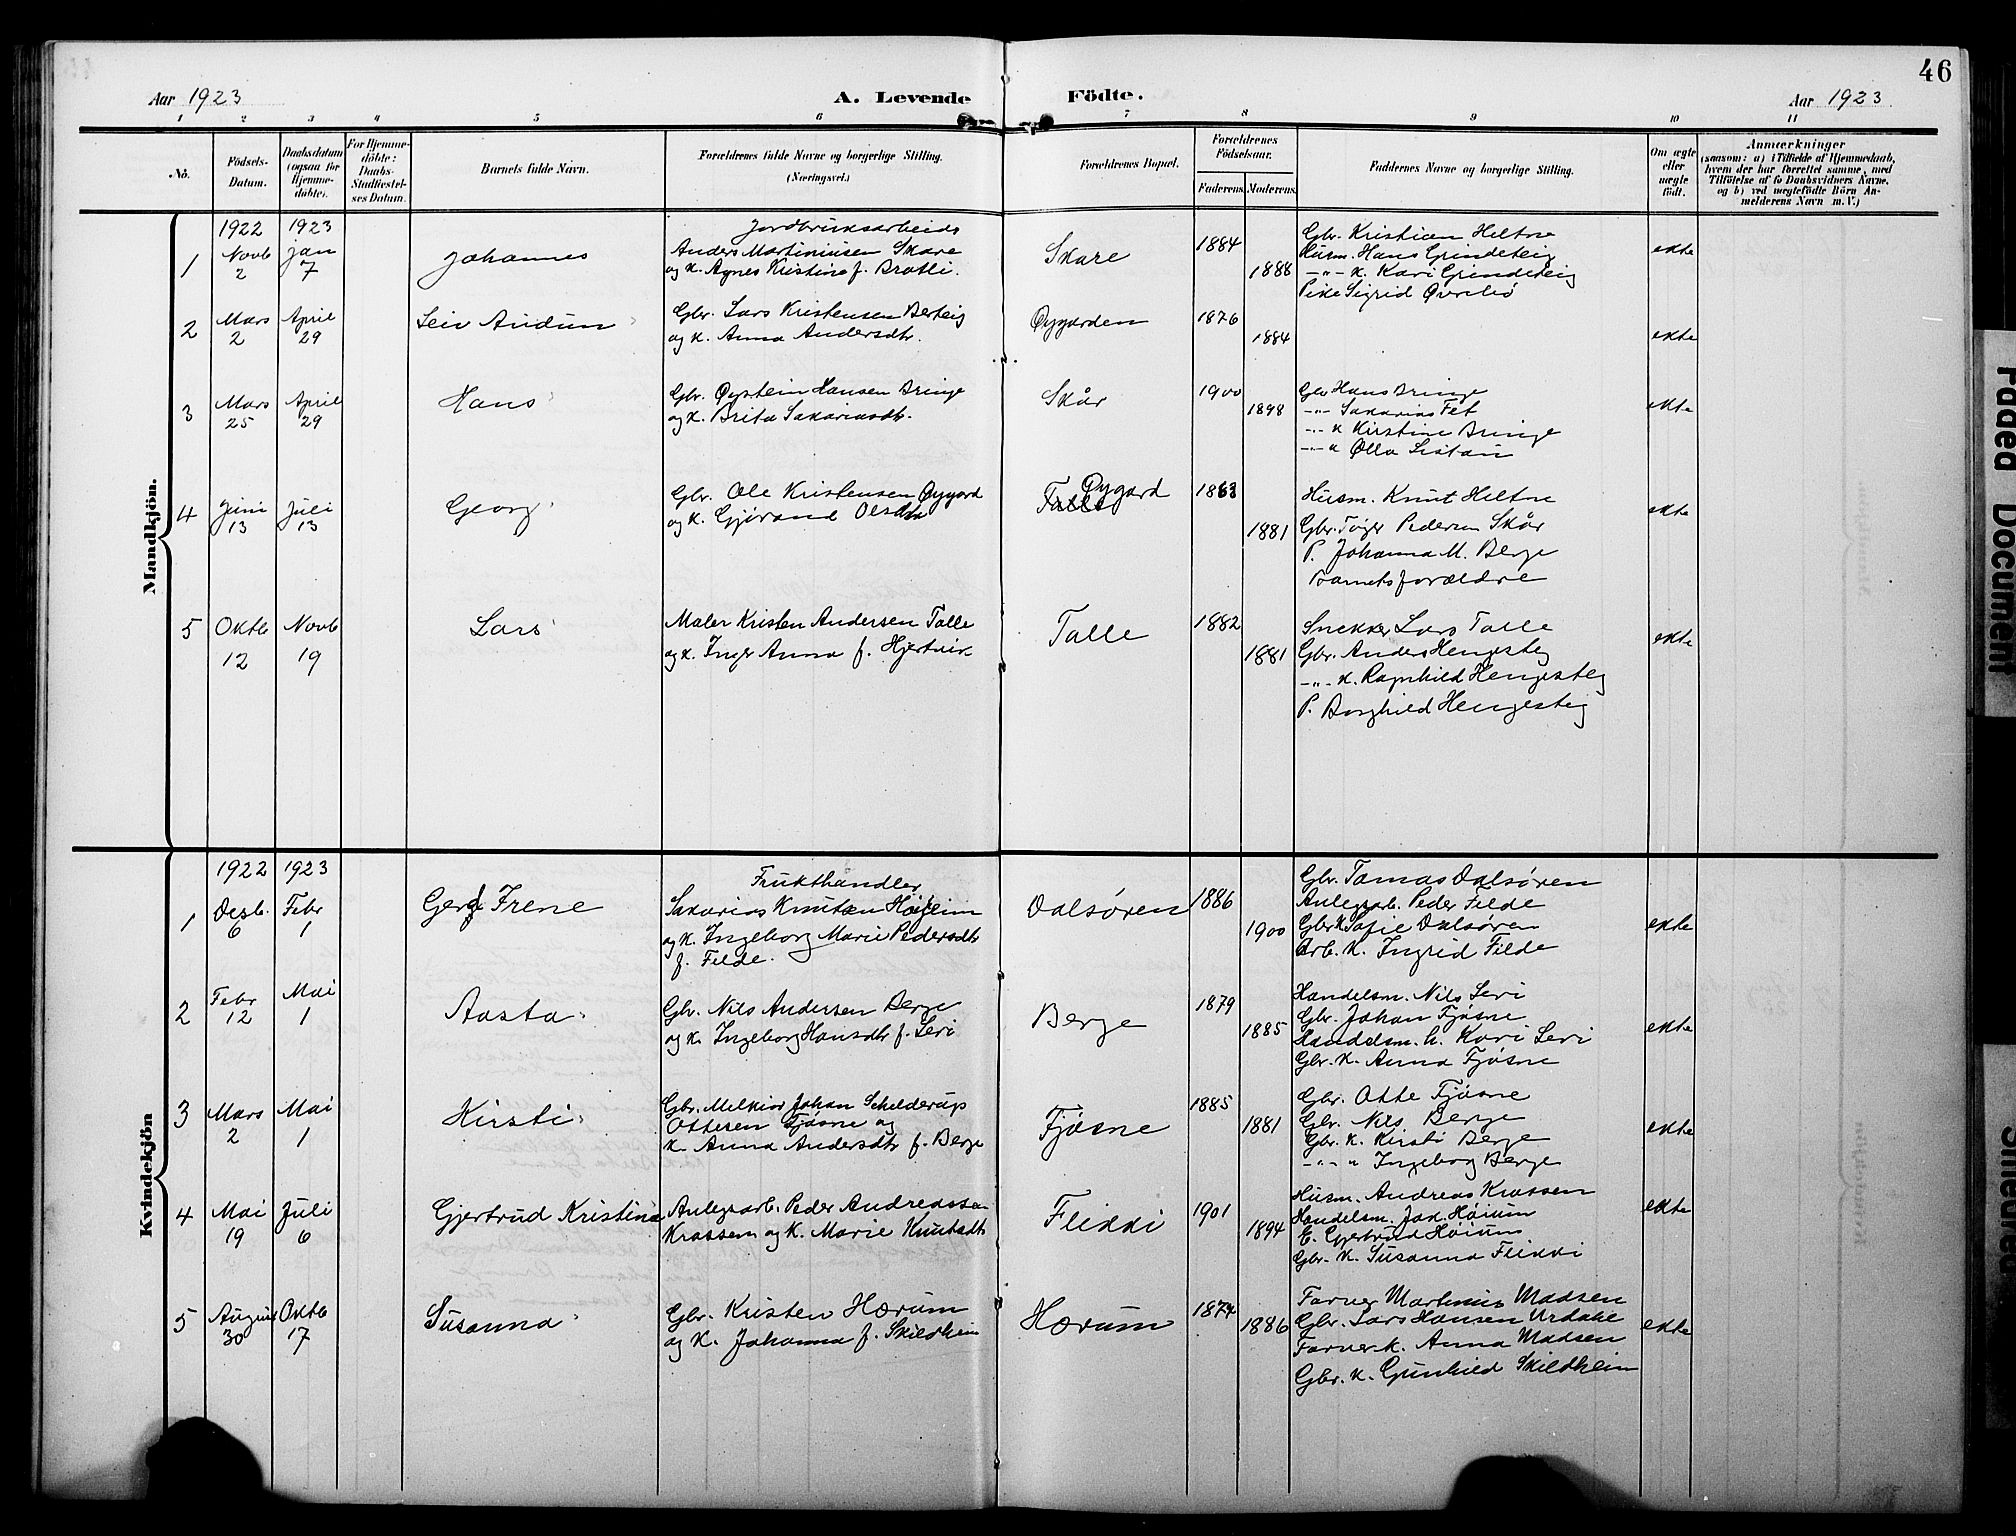 46
Aar 1923
A. Levende Födte.
Aar 1923
1 2 3 4 5 6 7 8 9 10 11
No.
Födsels-Datum.
Daabsdatum (ogsaa for Hjemmedöbte).
For Hjemmedöbte: Daabs-Stadfæstelses Datum.
Barnets fulde Navn.
Forældrenes fulde Navne og borgerlige Stilling.
(Næringsvei.)
Forældrenes Bopæl.
Forældrenes Födselsaar.
Faderens. Moderens.
Faddernes Navne og borgerlige Stilling.
Om ægte eller uægte födt.
Anmærkninger
(saasom: a) i Tilfælde af Hjemmedaab, hvem der har forrettet samme, med Tilföielse af to Daabsvidners Navne, og b) ved uægtefödte Börn Anmelderens Navn m. V.)
Mandkjön.
1922 1923
1 Novb 2 Jan 7 Johannes
Jordbruksarbeids
Anders Martiniusen Skare
og k. Agnes Kristine f. Bratli.
Skare 1884 1888
Gbr. Kristian Heltne
Husm. Hans Grindeteig
-"- k. Kari Grindeteig
Pike Sigrid Øvrebø
ekte
2 Mars 2 April 29 Leiv Audun
Gbr. Lars Kristensen Berteig
og k. Anna Andersdtr.
Øygarden 1876 1884
ekte
3 Mars 25 April 29 Hans
Gbr. Øystein Hansen Bringe
og k. Brita Sakariasdtr.
Skår 1900 1898
Gbr Hans Bringe
-"- Sakarias Fet
-"- k Kirstine Bringe
-"- k Olla
ekte
4 Juni 13 Juli 13 Georg
Gbr. Ole Kristensen Øygard
og k. Gjørand Olsdtr
Øygard
Talle 1863 1881
Husm. Knut Heltne
Gbr. Tøger Pedersen Skår
P. Johanna M. Berge
Barnets forældre
ekte
5 Oktb 12 Novb 19 Lars
Maler Kristen Andersen Talle
og k. Inger Anna f. Hjertvik
Talle 1882 1881
Snekker Lars Talle
Gbr. Anders Hengesteg
-"- k. Ragnhild Hengesteg
P. Borghild Hengesteg
ekte
Kvindekjön
1922 1923
1 Desb. 6 Febr 1 Gerd Irene
Frukthandler
Sakarias Knutsen Høiheim
og k. Ingeborg Marie Pedersdtr
f. Filde.
Dalsøren 1886 1900
Gbr. Tomas Dalsøren
Anlegsarb. Peder Filde
Gbr k Sofie Dalsøren
Arb. k. Ingrid Filde
ekte
2 Febr 12 Mai 1 Aasta
Gbr. Nils Andersen Berge
og k. Ingeborg Hansdtr f. Leri
Berge 1879 1885
Handelsm. Nils Leri
Gbr. Johan Fjøsne
Handelsm. h. Kari Leri
Gbr. k. Anna Fjøsne
ekte
3 Mars 2 Mai 1 Kirsti
Gbr. Melkior Johan Schelderup
Ottesen Fjøsne og
k. Anna Andersdtr f. Berge
Fjøsne 1885 1881
Gbr. Otte Fjøsne
Gbr. Nils Berge
Gbr. k. Kirsti Berge
-"- " Ingeborg Berge
ekte
4 Mai 19 Juli 6 Gjertrud Kristine
Anlegsarb. Peder Andreassen
Krossen og k. Marie Knutsdtr
Flikki 1901 1894
Husm. Andreas Krossen
Handelsm. Jak. Høium
E. Gjertrud Høium
Gbr. k. Susanna Flikki
ekte
5 August 30 Oktb 17 Susanna
Gbr. Kristen Hærum
og k. Johanna f. Skildheim
Hærum 1874 1886
Farver Martinius Madsen
Gbr. Lars Hansen Urdahl
Farver k. Anna Madsen
Gbr. k. Gunhild Skildheim
ekte
Faded Document